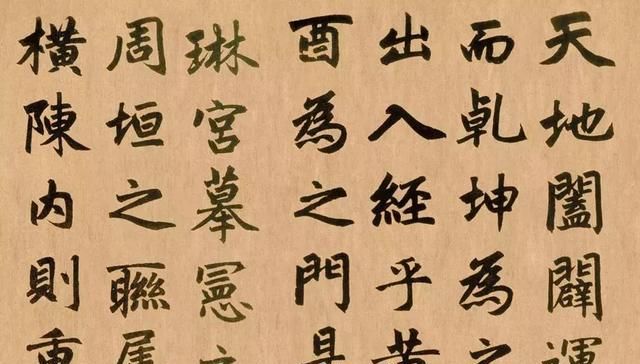 天地闔闢運
而乹坤為之
出入經乎黄
酉為之門是
琳宮摹憲
周垣之聯属
橫陳内則重